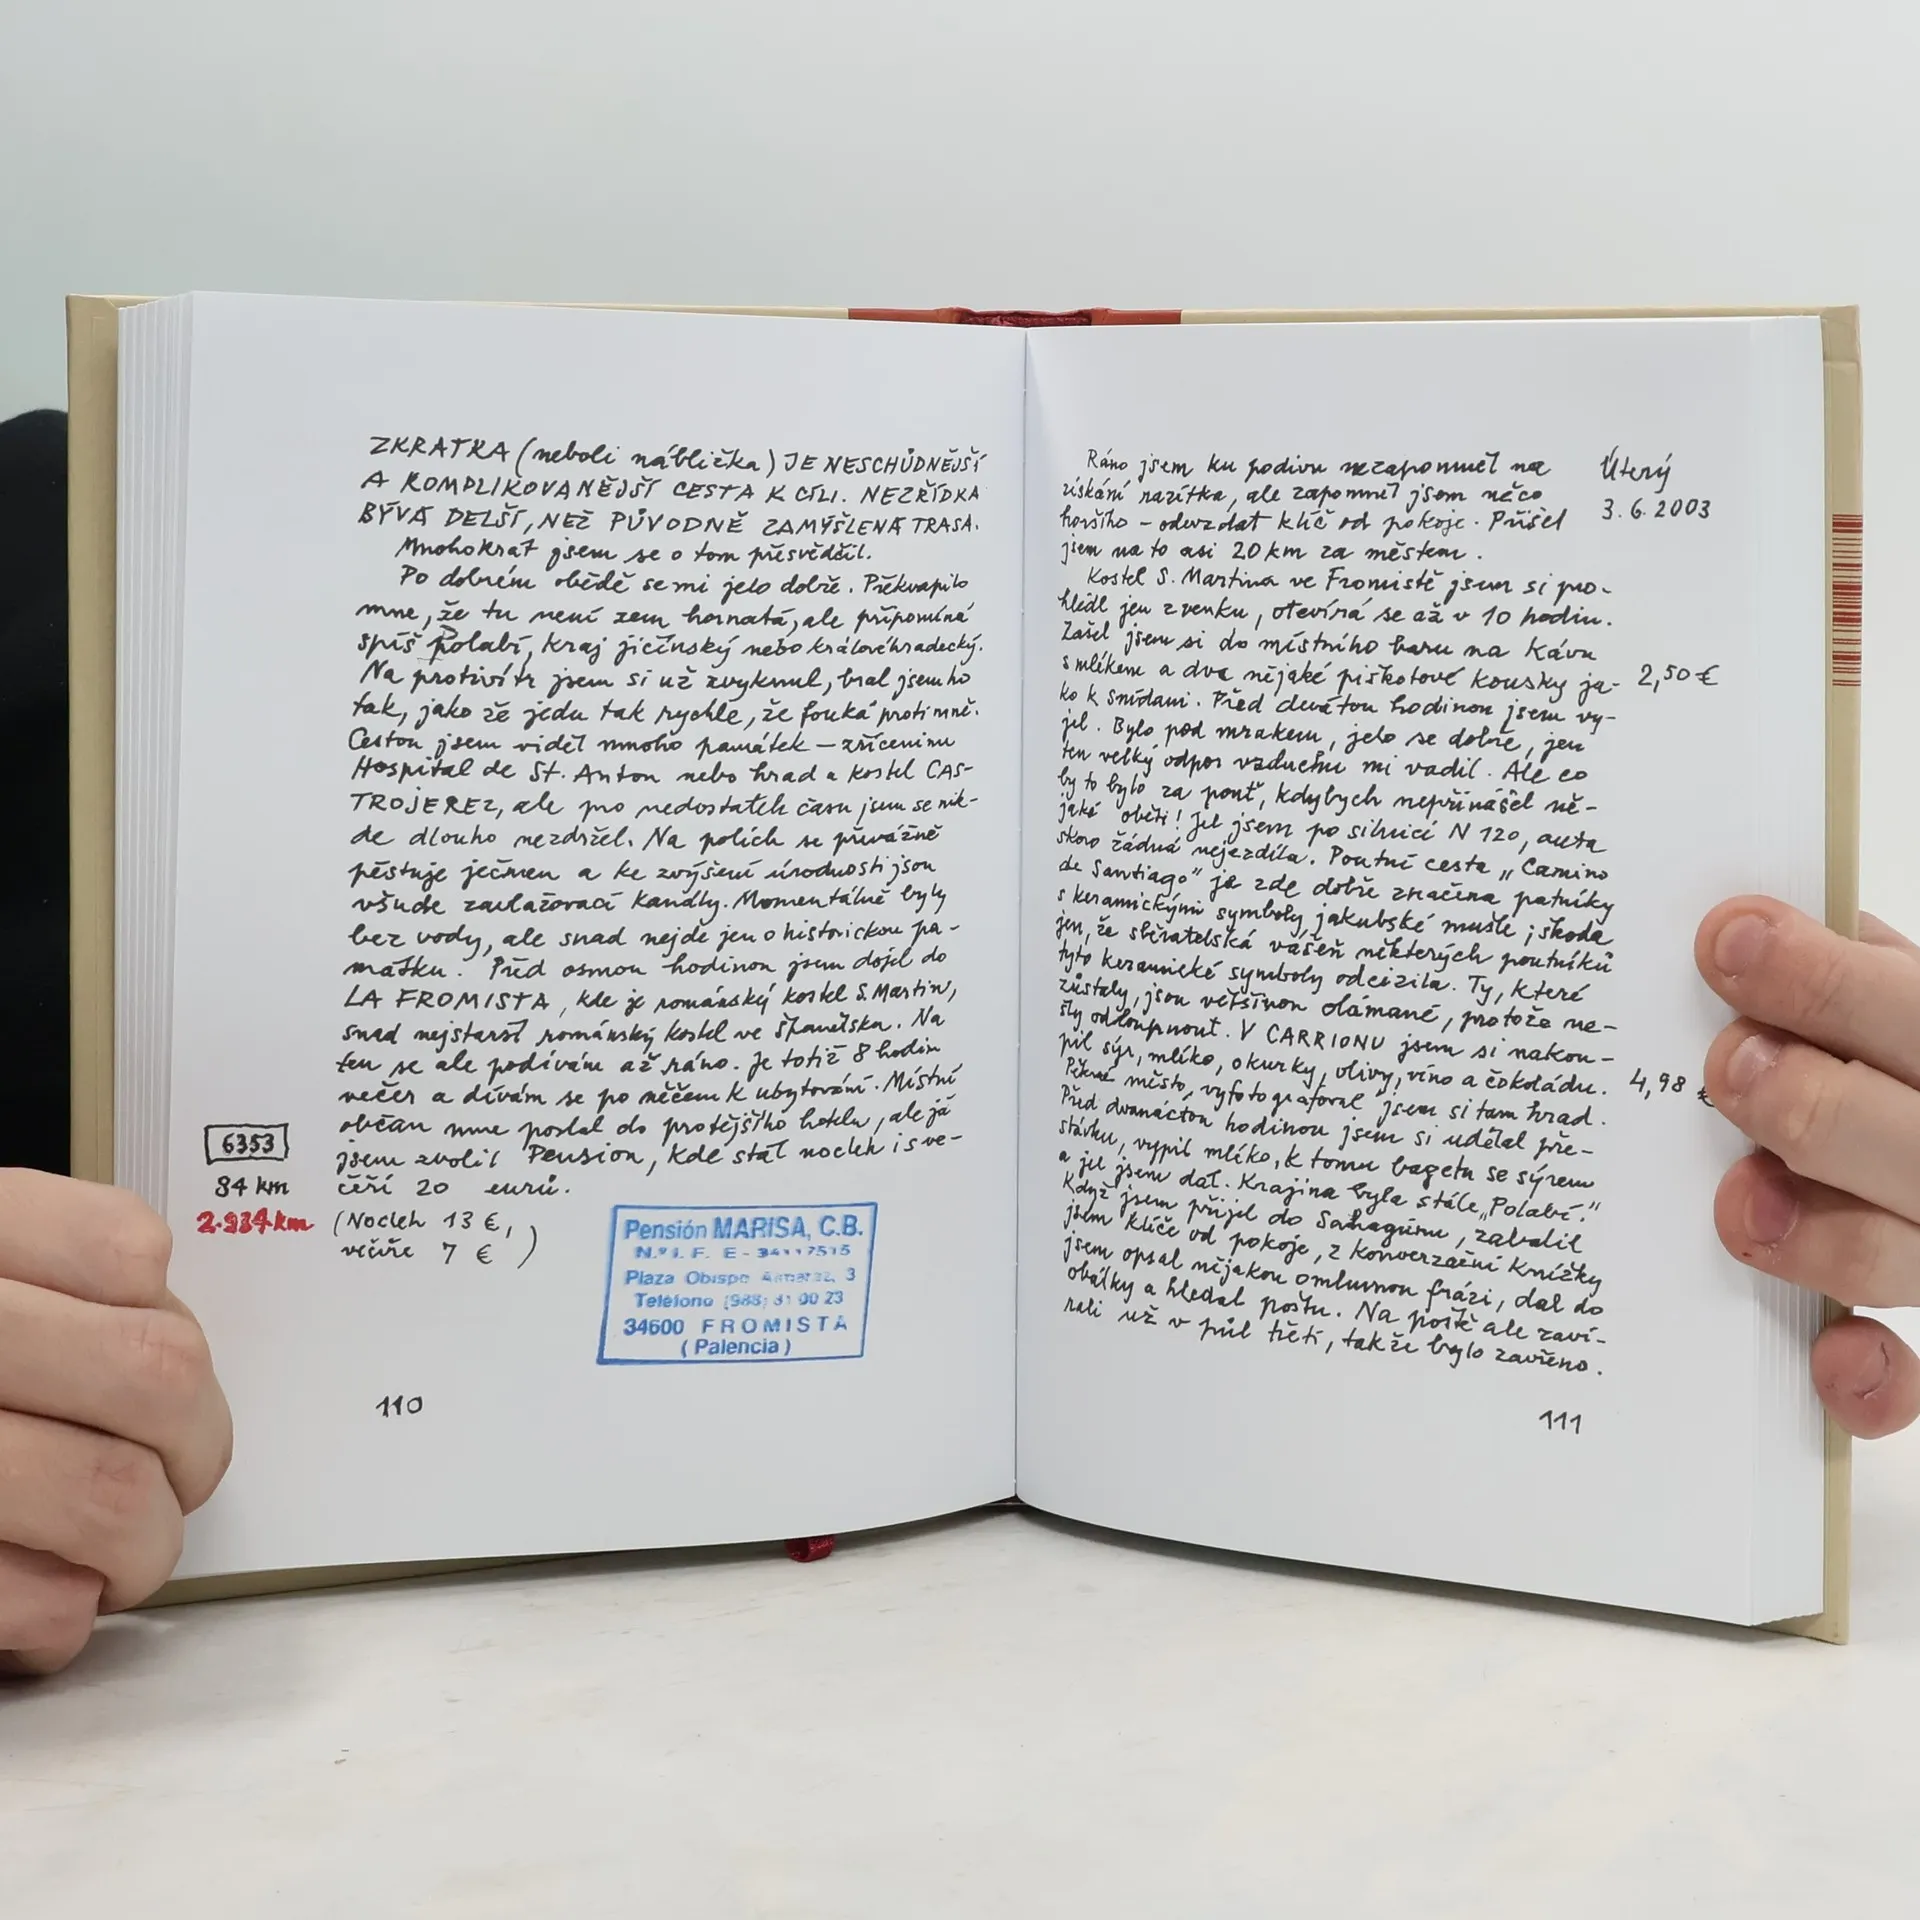 ZKRATKA (neboli nábližka) JE NESCHŮDNĚJŠÍ
A KOMPLIKOVANĚJŠÍ CESTA K CÍLI. NEZŘÍDKA
BÝVÁ DELŠÍ, NEŽ PŮVODNĚ ZAMÝŠLENÁ TRASA.
Mnohokrát jsem se o tom přesvědčil.
Po dobrém obědě se mi jelo dobře. Překvapilo
mne, že tu není zem hornatá, ale připomíná
spíš Polabí, kraj jičínský nebo královéhradecký.
Na protivítr jsem si už zvyknul, bral jsem ho
tak, jako že jedu tak rychle, že fouká proti mně.
Cestou jsem viděl mnoho památek – zříceninu
Hospital de St. Anton nebo hrad a kostel CAS-
TROJEREZ, ale pro nedostatek času jsem se nik-
de dlouho nezdržel. Na polích se převážně
pěstuje ječmen a ke zvýšení úrodnosti jsou
všude zavlažovací kanály. Momentálně byly
bez vody, ale snad nejde jen o historickou pa-
mátku. Před osmou hodinou jsem dojel do
LA FROMISTA, kde je románský kostel S. Martin,
snad nejstarší románský kostel ve Španělsku. Na
ten se ale podívám až ráno. Je totiž 8 hodin
večer a dívám se po něčem k ubytování. Místní
občan mne poslal do protějšího hotelu, ale já
jsem zvolil Pension, kde stál nocleh i s ve-
čeří 20 eurů.
(Nocleh 13 €,
večeře 7 €)
6353
84 km
2.934 km
Pensión MARISA, C.B.
N.º I. F. E - 34117515
Plaza Obispo Almaraz, 3
Teléfono (988) 81 00 23
34600 FROMISTA
(Palencia)
110
Úterý
3. 6. 2003
Ráno jsem ku podivu nezapomněl na
získání razítka, ale zapomněl jsem něco
horšího – odevzdat klíč od pokoje. Přišel
jsem na to asi 20 km za městem.
Kostel S. Martina ve Fromistě jsem si pro-
hlédl jen zvenku, otevírá se až v 10 hodin.
Zašel jsem si do místního baru na kávu
s mlékem a dva nějaké piškotové kousky ja-
2,50 €
ko k snídani. Před devátou hodinou jsem vy-
jel. Bylo pod mrakem, jelo se dobře, jen
ten velký odpor vzduchu mi vadil. Ale co
by to bylo za pouť, kdybych nepřinášel ně-
jaké oběti! Jel jsem po silnici N 120, auta
skoro žádná nejezdila. Poutní cesta „Camino
de Santiago" je zde dobře značena patníky
s keramickými symboly jakubské mušle; škoda
jen, že sběratelská vášeň některých poutníků
tyto keramické symboly odcizila. Ty, které
zůstaly, jsou většinou olámané, protože ne-
šly odloupnout. V CARRIONU jsem si nakou-
pil sýr, mlíko, okurky, olivy, víno a čokoládu.
4,98 €
Pěkné město, vyfotografoval jsem si tam hrad.
Před dvanáctou hodinou jsem si udělal pře-
stávku, vypil mlíko, k tomu bagetu se sýrem
a jel jsem dál. Krajina byla stále „Polabí."
Když jsem přijel do Sahagúnu, zabalil
jsem klíče od pokoje, z konverzační knížky
jsem opsal nějakou omluvnou frázi, dal do
obálky a hledal poštu. Na poště ale zaví-
rali už v půl třetí, takže bylo zavřeno.
111